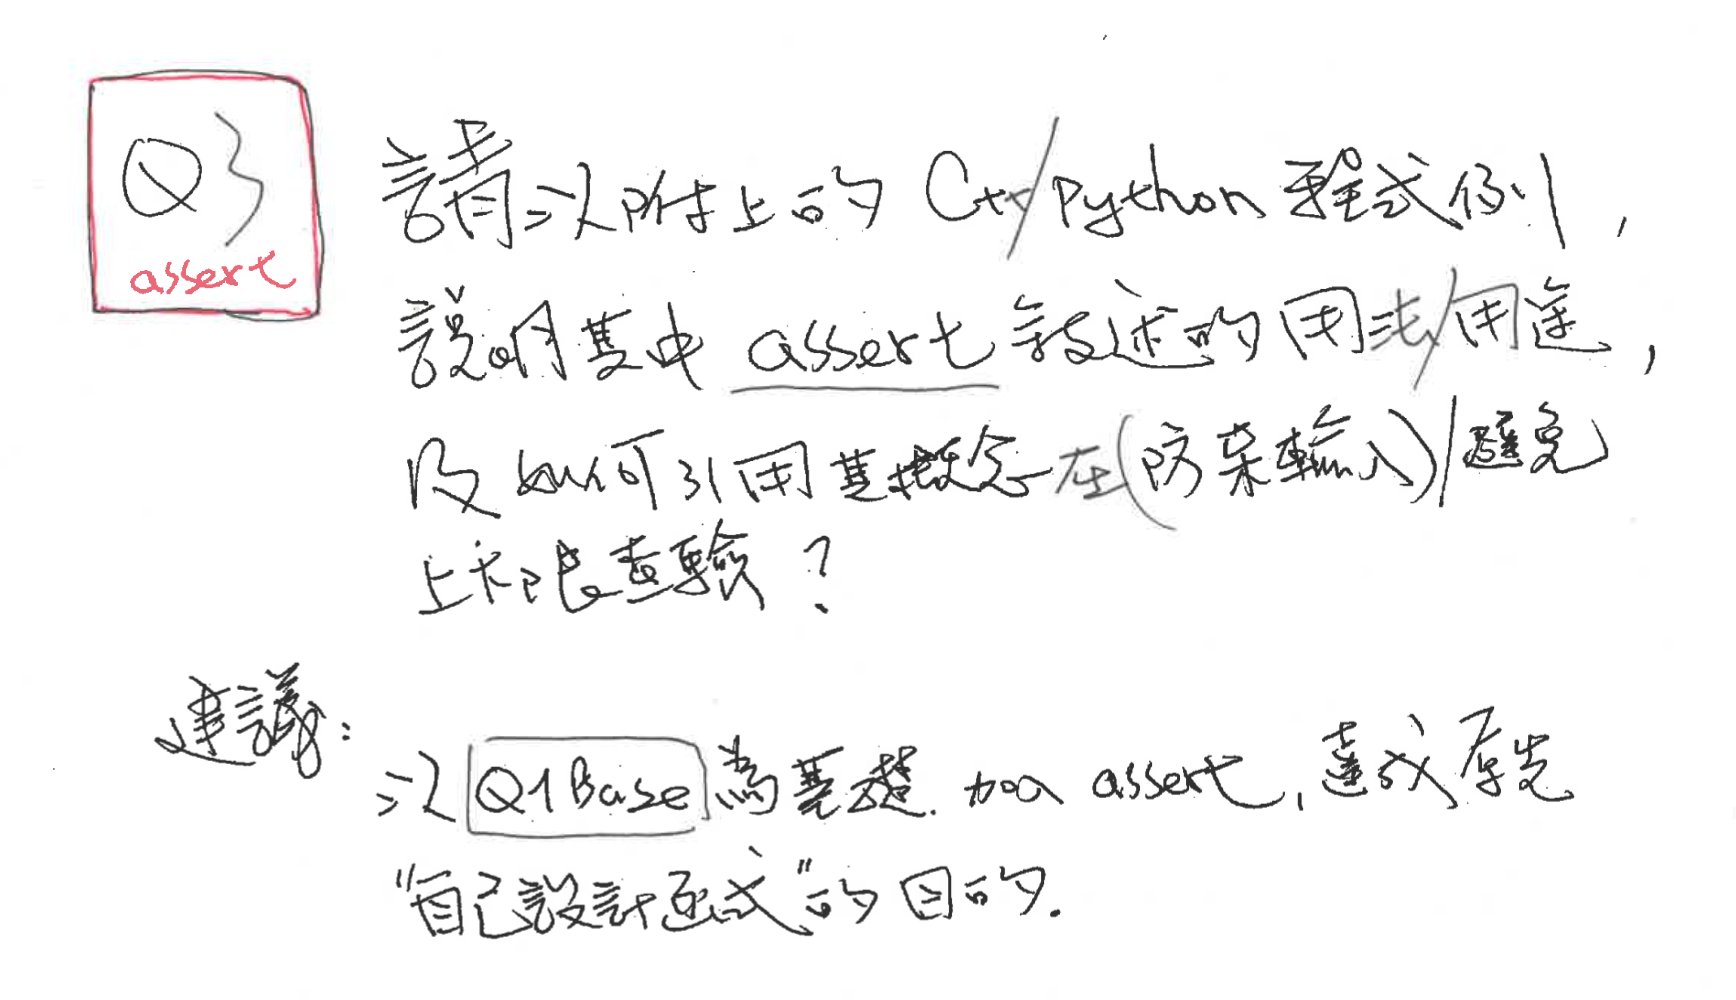 Q3
assert
請以附上的 C++/Python 程式例,
說明其中 assert 敍述的用法/用途,
及如何引用其概念在(防呆輸入)/避免
上下限查驗?
建議:
以 Q1Base 為基礎. 加入 assert, 達成原先
"自己設計函式"的目的.